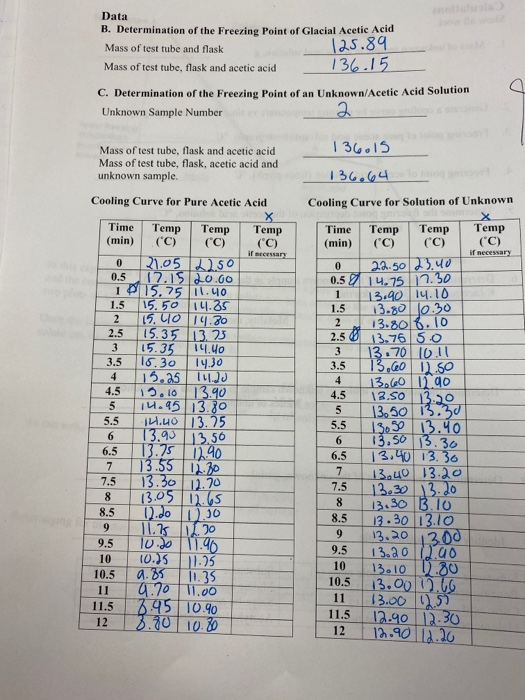 Data
B. Determination of the Freezing Point of Glacial Acetic Acid
Mass of test tube and flask 125.89
Mass of test tube, flask and acetic acid 136.15
C. Determination of the Freezing Point of an Unknown/Acetic Acid Solution
Unknown Sample Number 2
Mass of test tube, flask and acetic acid 136.15
Mass of test tube, flask, acetic acid and
unknown sample. 136.64
Cooling Curve for Pure Acetic Acid
x
Time (min) Temp (°C) Temp (°C) Temp (°C) if necessary
0 21.05 22.50
0.5 17.15 20.00
1 15.75 11.40
1.5 15.50 14.85
2 15.40 14.80
2.5 15.35 13.75
3 15.35 14.40
3.5 15.30 14.30
4 15.25 14.20
4.5 15.10 13.90
5 14.95 13.80
5.5 14.40 13.75
6 13.90 13.50
6.5 13.75 12.90
7 13.55 12.80
7.5 13.30 12.70
8 13.05 12.65
8.5 12.20
9 11.75
9.5 11.90
10 10.25 11.75
10.5 9.85 11.35
11 9.70 11.00
11.5 10.90
12 10.80
Cooling Curve for Solution of Unknown
x
Time (min) Temp (°C) Temp (°C) Temp (°C) if necessary
0 22.50 23.40
0.5 14.75 17.30
1 13.90 14.10
1.5 13.80 10.30
2 13.80 8.10
2.5 13.75 5.0
3 13.70 10.11
3.5 13.60 12.50
4 13.60 12.90
4.5 13.50 13.20
5 13.50 13.30
5.5 13.50 13.40
6 13.50 13.30
6.5 13.40 13.30
7 13.40 13.20
7.5 13.30 13.20
8 13.30 13.10
8.5 13.30 13.10
9 13.20 13.00
9.5 13.20 12.90
10 13.10 12.80
10.5 13.00 12.66
11 13.00 12.57
11.5 12.90 12.30
12 12.90 12.20